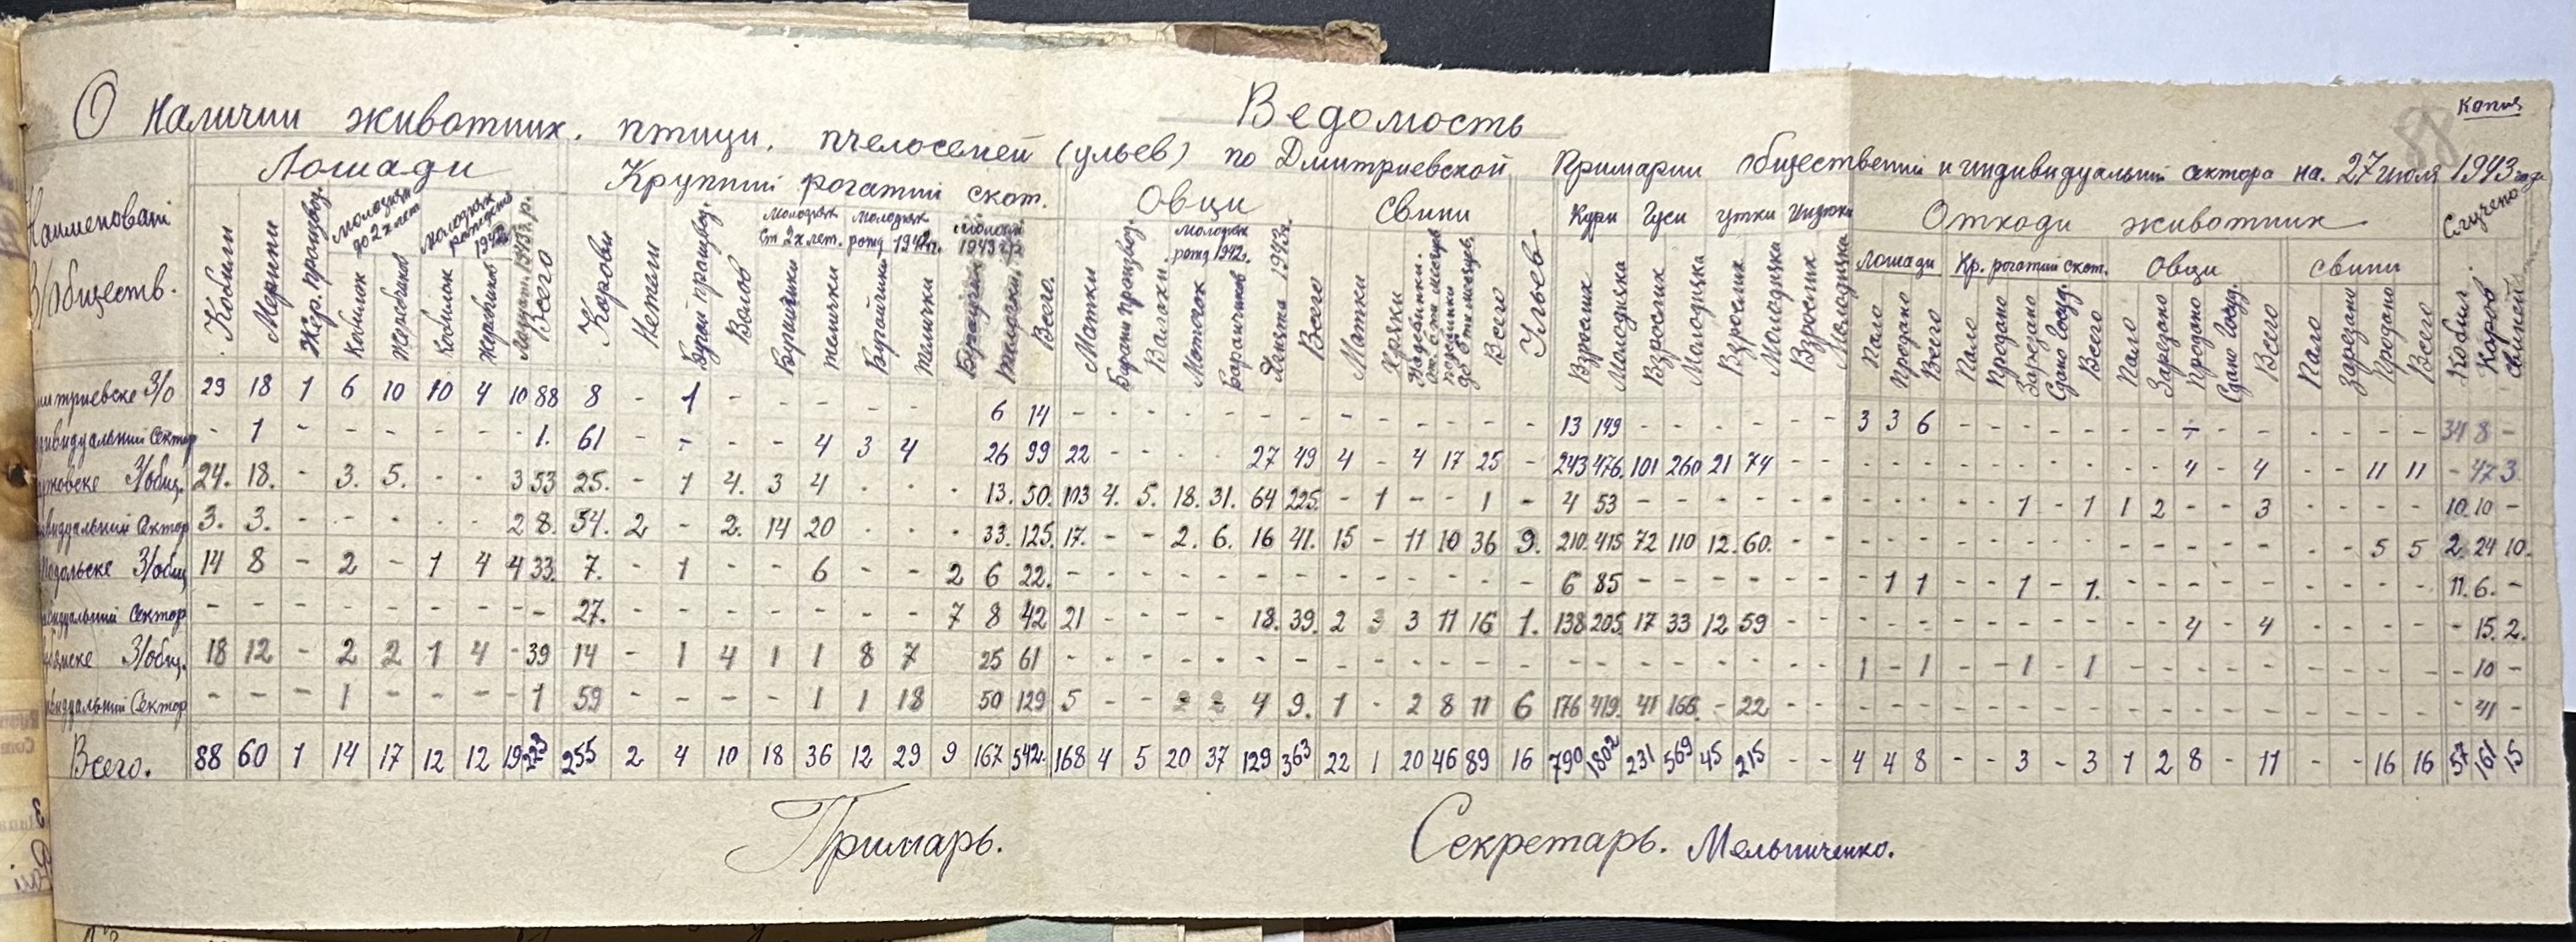 копия
88
Ведомость
О наличии животних, птици, пчелосемей (ульев) по Дмитриевской Примарии общественний и индивидуальний сектора на 27 июля 1943 года
Наименовани З/обществ.
Лошади
Кобили
Мерини
Жер. производ.
Молодняк до 2х лет
Кобилок
Жеребчиков
Молодняк рождения 1942
Кобилок
Жеребчиков
1943 г. р.
Всего
Крупний рогатий скот.
Карови
Нетели
Бугаи производ.
Волов
Молодняк ст 2х лет.
Бугайчики
телички
молодняк рожд 1942 г.
Бугайчики
Телички
1943 г. р.
Бугайчики
Телички
Всего
Овци
Матки
Барани производ.
Валахи
молодняк рожд 1942 г.
Маточок
баранчиков
Ягнята 1943
Всего
Свини
Матки
Хряки
Всего
Ульев
Кури
Взрослих
Молодняка
Гуси
Взрослих
Молодняка
утки
Взрослих
Молодняка
Индюки
Взрослих
Молодняка
Отходи животних
Лошади
Пало
Продано
Всего
Кр. рогатий скот.
Пало
Продано
Зарезано
Сдано Госуд.
Всего
Овци
Пало
Зарезано
Продано
Сдано Госуд.
Всего
Свини
Пало
Зарезано
Продано
Всего
Случено
Кобил
Коров
свиней
митриевске З/о 29 18 1 6 10 10 4 10 88 8 - 1 - - - - - 6 14 - - - - - - - - - - - - - 13 149 - - - - - - 3 3 6 - - - - - - - - - - - - - - 34 8 -
дивидуальний Сектор - 1 - - - - - - 1. 61 - - - - 4 3 4 26 99 22 - - - - 27 49 4 - 4 17 25 - 243 476 101 260 21 74 - - - - - - - - - - - - 4 - 4 - - 11 11 - 47 3
З/общ. 24. 18. - 3. 5. - - 3 53 25. - 1 4. 3 4 - - - 13. 50. 103 4. 5. 18. 31. 64 225. - 1 - - 1 - 4 53 - - - - - - - - - - - 1 - 1 1 2 - - 3 - - - - 10. 10 -
ивидуальний Сектор 3. 3. - - - - - 2 8. 54. 2 - 2. 14 20 - - - 33. 125. 17. - - 2. 6. 16 41. 15 - 11 10 36 9. 210. 415 72 110 12. 60. - - - - - - - - - - - - - - - - - 5 5 2. 24 10.
Подольске З/общ 14 8 - 2 - 1 4 4 33. 7. - 1 - - 6 - - 2 6 22. - - - - - - - - - - - - - 6 85 - - - - - - - 1 1 - - 1 - 1. - - - - - - - - - 11. 6. -
видуальний Сектор - - - - - - - - - 27. - - - - - - - 7 8 42 21 - - - - 18. 39. 2 3 3 11 16 1. 138 205 17 33 12 59 - - - - - - - - - - - - 4 - 4 - - - - - 15. 2.
З/общ. 18 12 - 2 2 1 4 - 39 14 - 1 4 1 1 8 7 25 61 - - - - - - - - - - - - - - - - - - - - - 1 - 1 - - 1 - 1 - - - - - - - - - - 10 -
видуальний Сектор - - - 1 - - - - 1 59 - - - - 1 1 18 50 129 5 - - 2 2 4 9. 1 - 2 8 11 6 176 419. 41 166. - 22 - - - - - - - - - - - - - - - - - - - - 41 -
Всего. 88 60 1 14 17 12 12 19 223 255 2 4 10 18 36 12 29 9 167 542. 168 4 5 20 37 129 363 22 1 20 46 89 16 790 1802 231 569 45 215 - - 4 4 8 - - 3 - 3 1 2 8 - 11 - - 16 16 57 161 15
Примарь. Секретарь. Мельниченко.